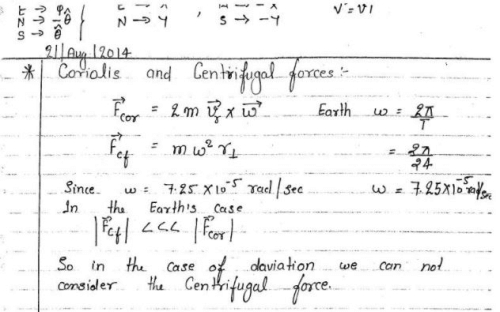 E → φ̂
N → -θ̂ N → Y , S → -Y V' = V1
S → θ̂
21 | Aug | 2014
* Coriolis and Centrifugal forces :-
F⃗cor = 2 m v⃗ x ω⃗ Earth ω = 2π/T
F⃗cf = m ω² r⊥ = 2π/24
Since ω = 7.25 x 10⁻⁵ rad / sec ω = 7.25 x 10⁻⁵ rad/sec
In the Earth's case
|F⃗cf| <<< |F⃗cor|
So in the case of daviation we can not
consider the Centrifugal force.